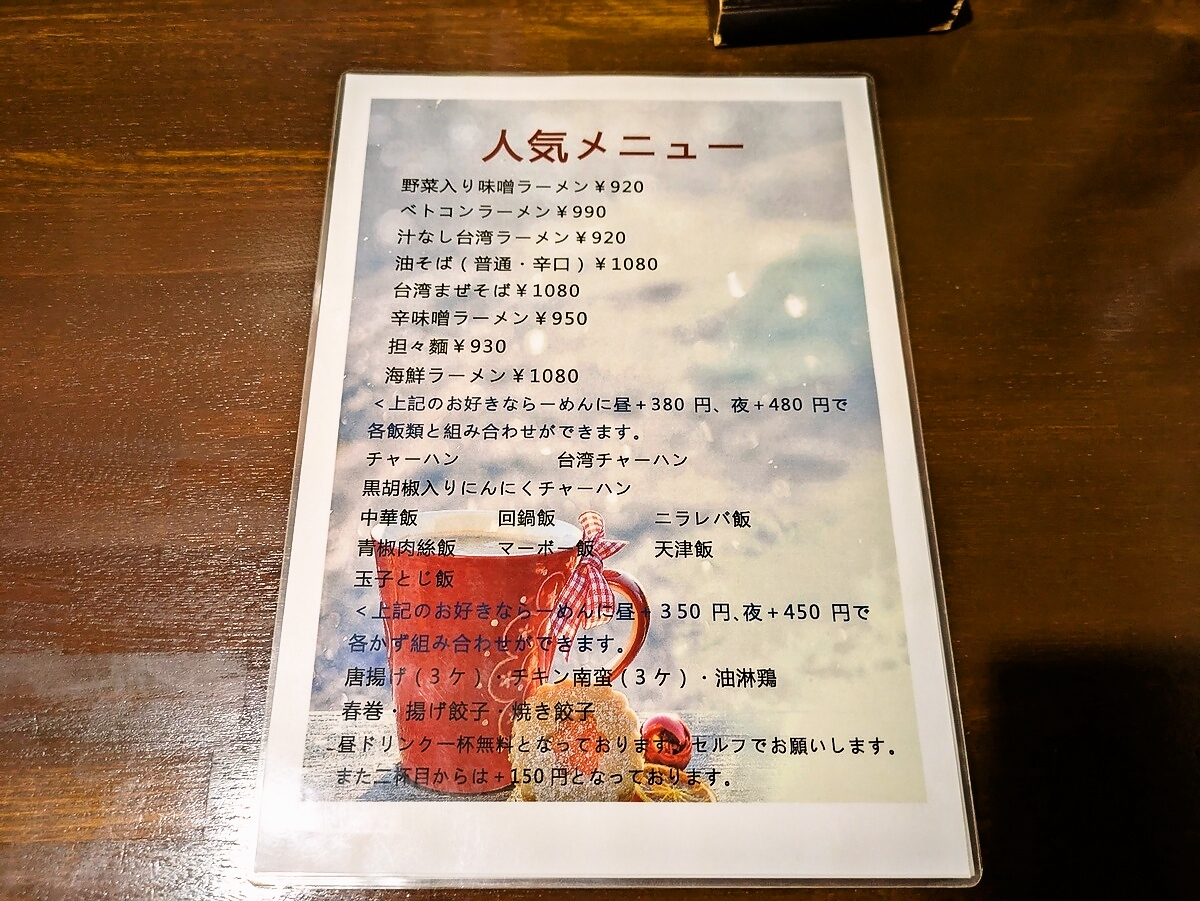 人気メニュー
野菜入り味噌ラーメン¥920
ベトコンラーメン¥990
汁なし台湾ラーメン¥920
油そば(普通・辛口)¥1080
台湾まぜそば¥1080
辛味噌ラーメン¥950
担々麺¥930
海鮮ラーメン¥1080
<上記のお好きならーめんに昼+380 円、夜+480 円で
各飯類と組み合わせができます。
チャーハン 台湾チャーハン
黒胡椒入りにんにくチャーハン
中華飯 回鍋飯 ニラレバ飯
青椒肉絲飯 マーボー飯 天津飯
玉子とじ飯
<上記のお好きならーめんに昼+350 円、夜+450 円で
各かず組み合わせができます。
唐揚げ(3ケ)・チキン南蛮(3ケ)・油淋鶏
春巻・揚げ餃子・焼き餃子
昼ドリンク一杯無料となっております。セルフでお願いします。
また二杯目からは+150 円となっております。